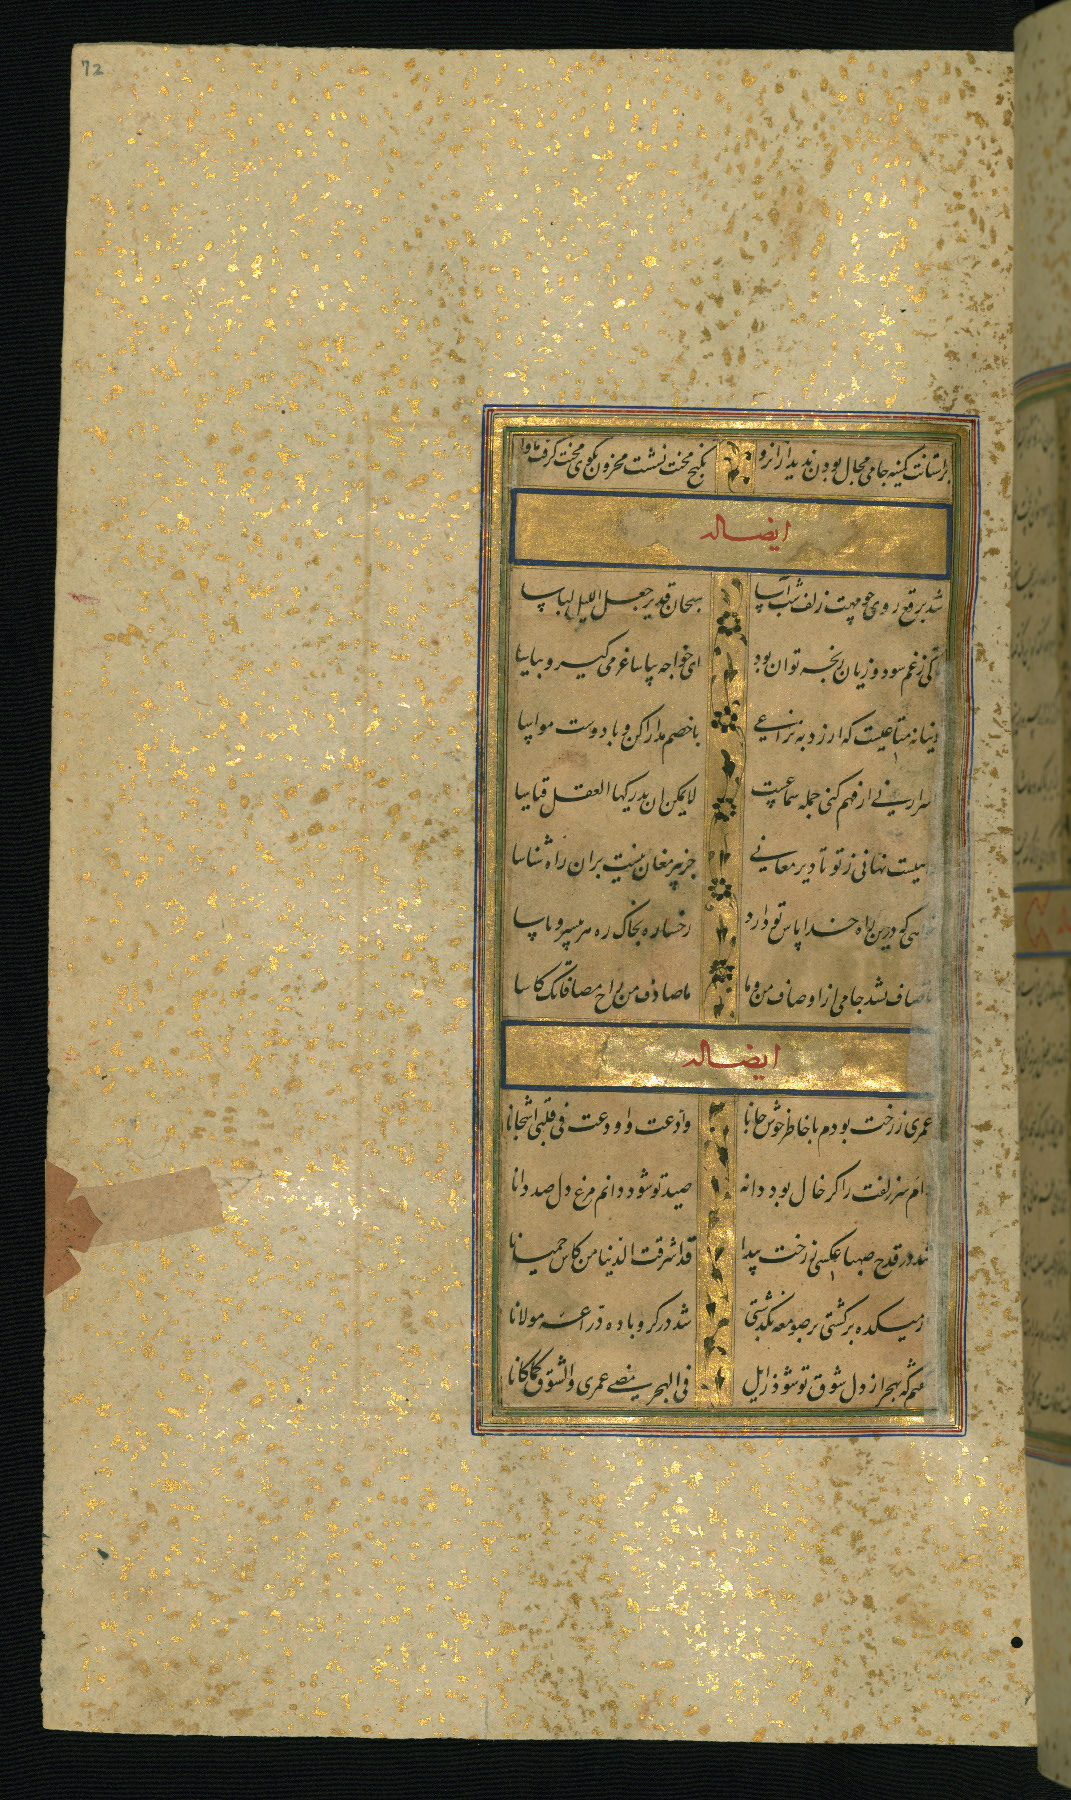 72
بر آستانت کمینه جامی مجال بودن ندید از آنرو بکنج محنت نشست محزون بکوی محنت گرفت ماوا
ایضا له
شد برقع روی چو مهت زلف شب آسا سبحان قدیر جعل اللیل لباسا
تا کی ز غم سود و زیان رنجه توان بود ای خواجه بیا ساغر می گیر و بیاسا
دنیا نه متاعیست که ارزد به نزاعی با خصم مدارا کن و با دوست مواسا
اسرار ز نی ار فهم کنی جمله سماعیست لا یمکن ان یدرکها العقل قیاسا
نهانی ز تو تا دیر معانی جز پیر مغان نیست بر آن راه شناسا
خواهی که درین راه خدا پاس تو دارد رخساره بخاک ره هر بی سر و پا سا
ناصاف نشد جامی از اوصاف من و ما ما صادف من راح مصافاتک کاسا
ایضا له
عمری ز رخت بودم با خاطر خوش جانا وادعت و اودعت فی قلبی اشجانا
دام سر زلفت را گر خال بود دانه صید تو شود دانم مرغ دل صد دانا
شد در قدح صهبا عکسی ز رخت پیدا قد اشرقت الدنیا من کاس حمیانا
ز میکده برگشتی بر صومعه بگذشتی شد در گرو باده دراعه مولانا
گفتم که بهجر از دل شوق تو شود زایل فی الهجر مضی عمری والشوق کما کانا